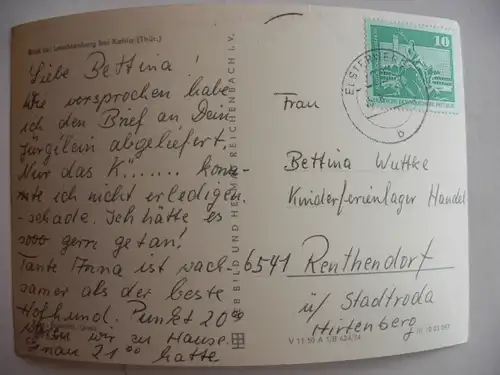 Blick zur Leuchtenburg bei Kahla (Thür.)
Liebe Bettina!
Wie versprochen habe
ich den Brief an Dein
Jürgilein abgeliefert.
Nur das K....... konn-
te ich nicht erledigen.
-schade. Ich hätte es
sooo gern getan!
Tante Anna ist wach-
samer als der beste
Hofhund. Punkt 20⁰⁰
waren wir zu Hause.
Genau 21⁰⁰ hatte
BILD UND HEIMAT REICHENBACH I. V.
ELSTERWER
b
10
DEUTSCHE DEMOKRATISCHE REPUBLIK
Frau
Bettina Wuttke
Kinderferienlager Handel
6541 Renthendorf
ü/ Stadtroda
Hirtenberg
V 11 50 A 1/B 624/74